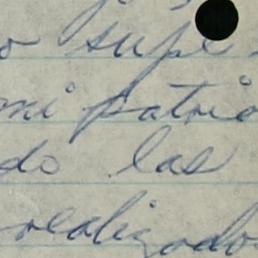 o supe
mi patrio
do las
realizado